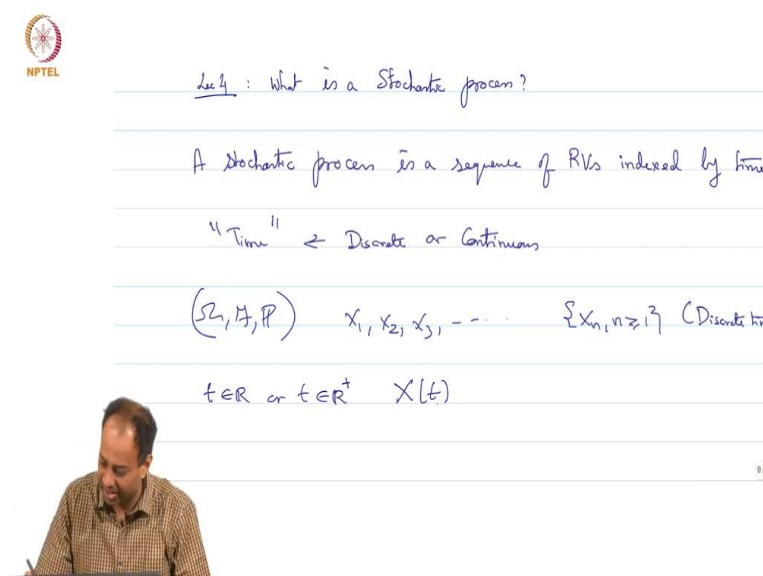 NPTEL
Lec 4 : What is a Stochastic process?
A stochastic process is a sequence of RVs indexed by time
"Time" ← Discrete or Continuous
(Ω, F, P) X₁, X₂, X₃, --- {Xₙ, n≥1} (Discrete ti
t∈R or t∈R⁺ X(t)